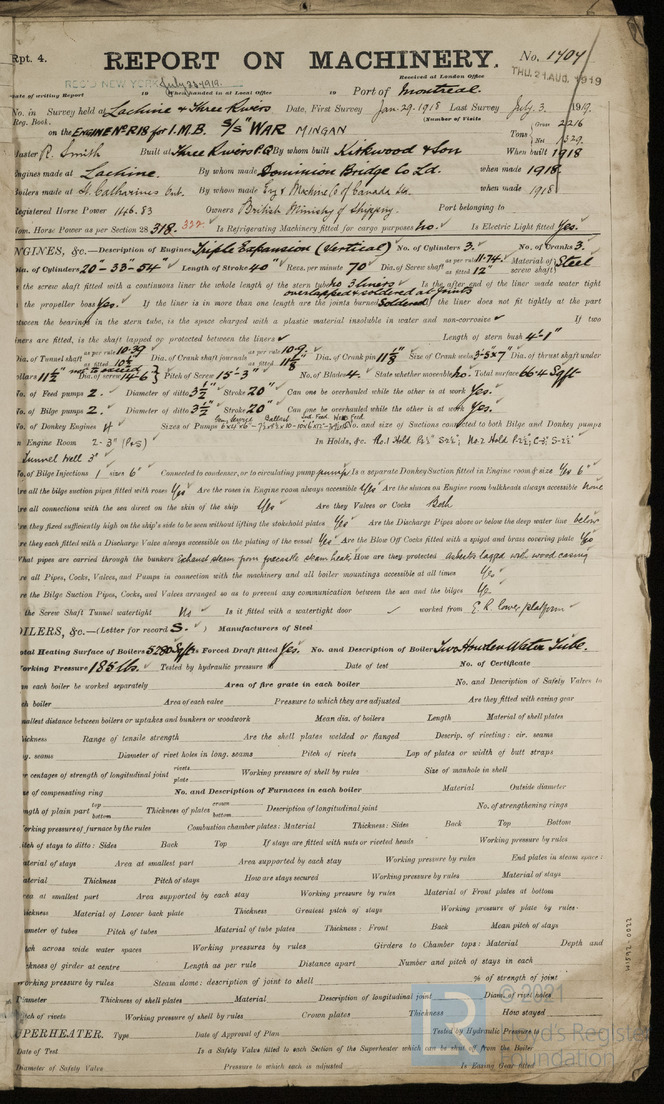 Rpt. 4.
REPORT ON MACHINERY.
No. 1707
REC'D NEW YORK July 28-1919.
Received at London Office
THU. 21 AUG. 1919
Date of writing Report 19 When handed in at Local Office 19 Port of Montreal.
No. in Survey held at Lachine & Three Rivers Date, First Survey Jan. 29. 1918 Last Survey July. 3. 1919.
Reg. Book. (Number of Visits
on the ENGINE No R18 for I.M.B. S/S "WAR MINGAN
Tons { Gross 2216
Net 1329
Master R. Smith Built at Three Rivers P.Q. By whom built Kirkwood & Son When built 1918
Engines made at Lachine. By whom made Dominion Bridge Co Ld. when made 1918.
Boilers made at St. Catharines Ont. By whom made Eng & Machine Co of Canada Ld. when made 1918
Registered Horse Power 1426.83 Owners British Ministry of Shipping. Port belonging to
Nom. Horse Power as per Section 28 318. 322 Is Refrigerating Machinery fitted for cargo purposes No. Is Electric Light fitted Yes.
ENGINES, &c.—Description of Engines Triple Expansion (Vertical) No. of Cylinders 3. No. of Cranks 3.
Dia. of Cylinders 20"-33"-54" Length of Stroke 40" Revs. per minute 70 Dia. of Screw shaft as per rule 11.74. as fitted 12" Material of screw shaft Steel
Is the screw shaft fitted with a continuous liner the whole length of the stern tube No 3 liners Is the after end of the liner made water tight
overlapped & soldered at joints
in the propeller boss Yes. If the liner is in more than one length are the joints burned Soldered. If the liner does not fit tightly at the part
between the bearings in the stern tube, is the space charged with a plastic material insoluble in water and non-corrosive If two
liners are fitted, is the shaft lapped or protected between the liners Length of stern bush 4'-1"
Dia. of Tunnel shaft as per rule 10.39 as fitted Dia. of Crank shaft journals as per rule 10.9. as fitted 11⅛ Dia. of Crank pin 11⅛" Size of Crank webs Dia. of thrust shaft under
collars 11½" Dia. of screw 14-6" Pitch of Screw 15'-3" No. of Blades 4. State whether moveable No. Total surface 66.4 Sqft
No. of Feed pumps 2. Diameter of ditto 3½" Stroke 20" Can one be overhauled while the other is at work Yes.
No. of Bilge pumps 2. Diameter of ditto 3½" Stroke 20" Can one be overhauled while the other is at work Yes.
No. of Donkey Engines 4 Sizes of Pumps No. and size of Suctions connected to both Bilge and Donkey pumps
In Engine Room 2-3" (P+S) In Holds, &c. No.1 Hold P2½" S2½; No 2 Hold P2½; C-½ S-2½"
Tunnel Well 3"
No. of Bilge Injections 1 sizes 6" Connected to condenser, or to circulating pump pump Is a separate Donkey Suction fitted in Engine room & size Yes 6"
Are all the bilge suction pipes fitted with roses Yes Are the roses in Engine room always accessible Yes Are the sluices on Engine room bulkheads always accessible none
Are all connections with the sea direct on the skin of the ship Yes Are they Valves or Cocks Both
Are they fixed sufficiently high on the ship's side to be seen without lifting the stokehold plates Yes Are the Discharge Pipes above or below the deep water line below
Are they each fitted with a Discharge Valve always accessible on the plating of the vessel Yes Are the Blow Off Cocks fitted with a spigot and brass covering plate Yes
What pipes are carried through the bunkers Exhaust steam from forecastle steam heat How are they protected asbestos lagged with wood casing
Are all Pipes, Cocks, Valves, and Pumps in connection with the machinery and all boiler mountings accessible at all times Yes
Are the Bilge Suction Pipes, Cocks, and Valves arranged so as to prevent any communication between the sea and the bilges Yes
Is the Screw Shaft Tunnel watertight Is it fitted with a watertight door worked from E.R. lower platform
BOILERS, &c.—(Letter for record S.) Manufacturers of Steel
Total Heating Surface of Boilers 5280 Sqft Is Forced Draft fitted Yes. No. and Description of Boilers Two Howden Water Tube.
Working Pressure 185 lbs. Tested by hydraulic pressure to Date of test No. of Certificate
Can each boiler be worked separately Area of fire grate in each boiler No. and Description of Safety Valves to
each boiler Area of each valve Pressure to which they are adjusted Are they fitted with easing gear
Smallest distance between boilers or uptakes and bunkers or woodwork Mean dia. of boilers Length Material of shell plates
Thickness Range of tensile strength Are the shell plates welded or flanged Descrip. of riveting: cir. seams
long. seams Diameter of rivet holes in long. seams Pitch of rivets Lap of plates or width of butt straps
Per centages of strength of longitudinal joint rivets plate Working pressure of shell by rules Size of manhole in shell
Size of compensating ring No. and Description of Furnaces in each boiler Material Outside diameter
Length of plain part top bottom Thickness of plates crown bottom Description of longitudinal joint No. of strengthening rings
Working pressure of furnace by the rules Combustion chamber plates: Material Thickness: Sides Back Top Bottom
Pitch of stays to ditto: Sides Back Top If stays are fitted with nuts or riveted heads Working pressure by rules
Material of stays Area at smallest part Area supported by each stay Working pressure by rules End plates in steam space:
Material Thickness Pitch of stays How are stays secured Working pressure by rules Material of stays
Area at smallest part Area supported by each stay Working pressure by rules Material of Front plates at bottom
Thickness Material of Lower back plate Thickness Greatest pitch of stays Working pressure of plate by rules
Diameter of tubes Pitch of tubes Material of tube plates Thickness: Front Back Mean pitch of stays
Pitch across wide water spaces Working pressures by rules Girders to Chamber tops: Material Depth and
thickness of girder at centre Length as per rule Distance apart Number and pitch of stays in each
Working pressure by rules Steam dome: description of joint to shell % of strength of joint
Diameter Thickness of shell plates Material Description of longitudinal joint Diam. of rivet holes
Pitch of rivets Working pressure of shell by rules Crown plates Thickness How stayed
SUPERHEATER. Type Date of Approval of Plan Tested by Hydraulic Pressure to
Date of Test Is a Safety Valve fitted to each Section of the Superheater which can be shut off from the Boiler
Diameter of Safety Valve Pressure to which each is adjusted Is Easing Gear fitted
W1592-0022
© 2021
Lloyd's Register
Foundation